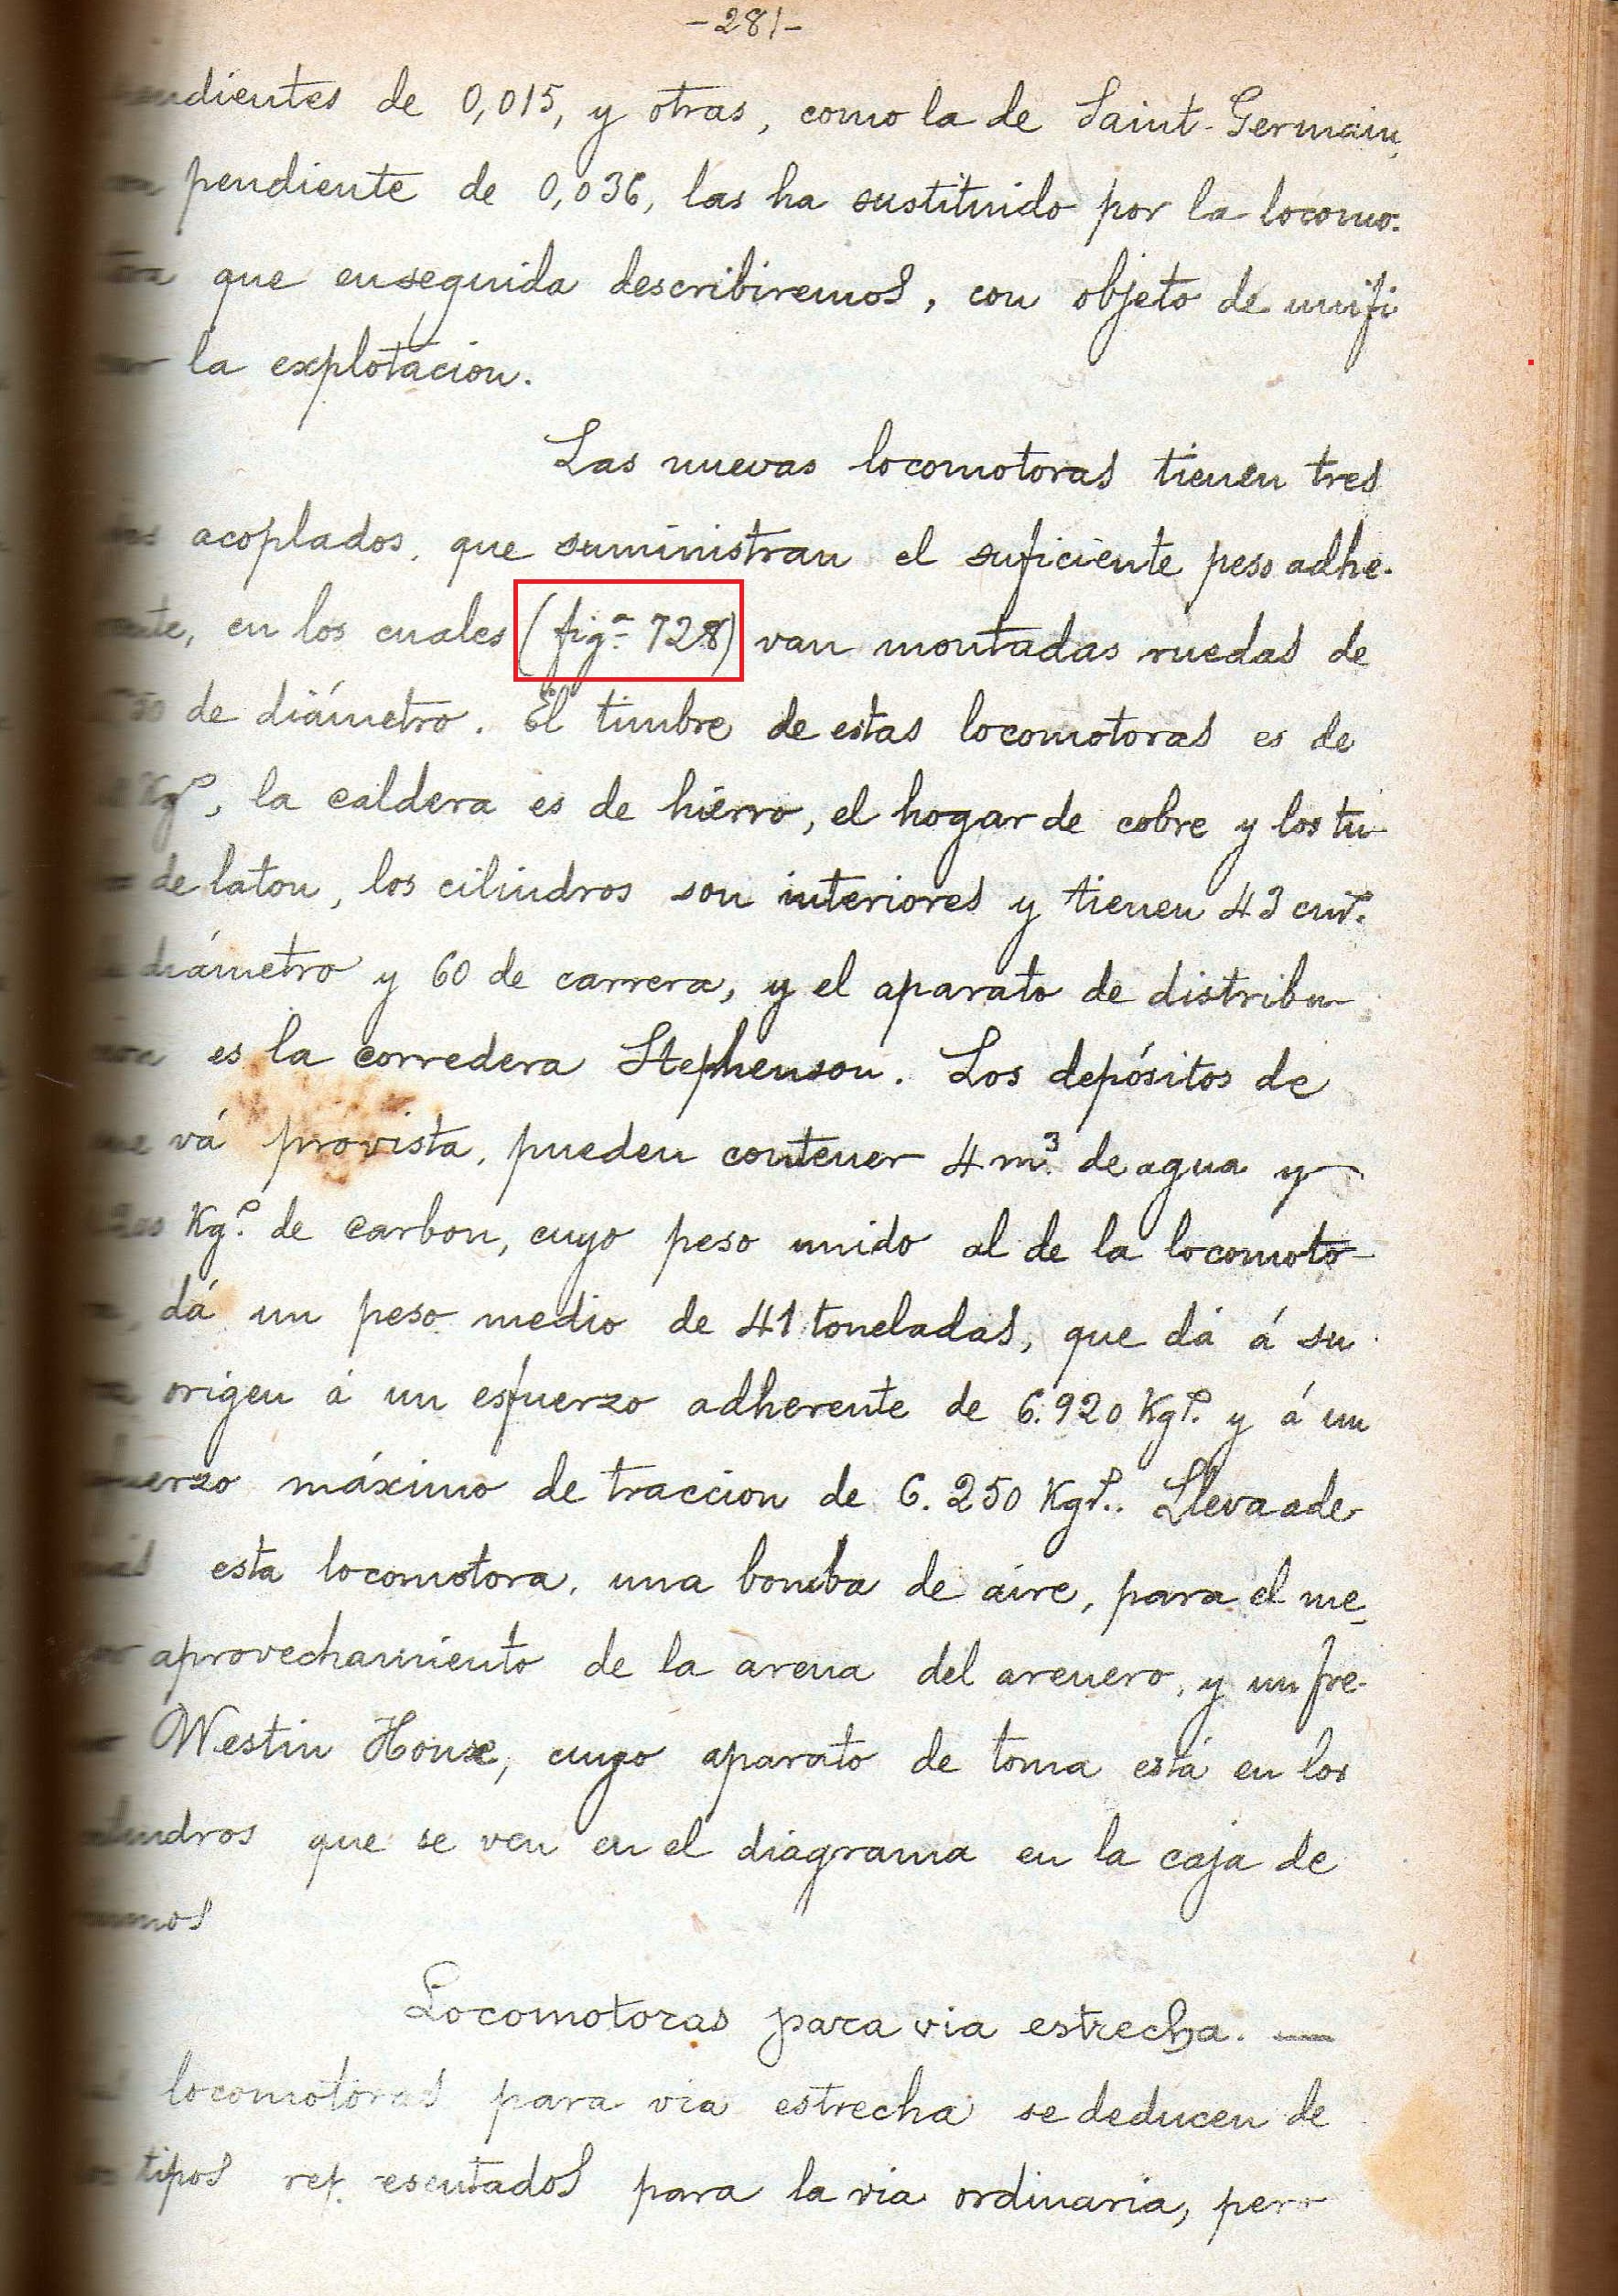 -281-
pendientes de 0,015, y otras, como la de Saint-Germain,
pendiente de 0,036, las ha sustituido por la locomo-
tora que enseguida describiremos, con objeto de unifi
car la explotacion.
Las nuevas locomotoras tienen tres
acoplados, que suministran el suficiente peso adhe-
rente, en los cuales (figª 728) van montadas ruedas de
de diámetro. El timbre de estas locomotoras es de
Kgs, la caldera es de hierro, el hogar de cobre y los tu
de laton, los cilindros son interiores y tienen 43 cms.
diámetro y 60 de carrera, y el aparato de distribu
cion es la corredera Stephenson. Los depósitos de
que vá provista, pueden contener 4 m³. de agua y
Kgs. de carbon, cuyo peso unido al de la locomoto
ra, dá un peso medio de 41 toneladas, que dá á su
origen á un esfuerzo adherente de 6.920 Kgs. y á un
esfuerzo máximo de traccion de 6.250 Kgs.. Lleva ade
más esta locomotora, una bomba de aire, para el me
jor aprovechamiento de la arena del arenero, y un fre-
no Westin House, cuyo aparato de toma está en los
cilindros que se ven en el diagrama en la caja de
humos
Locomotoras para via estrecha. —
locomotoras para via estrecha se deducen de
tipos rep esentados para la via ordinaria, pero